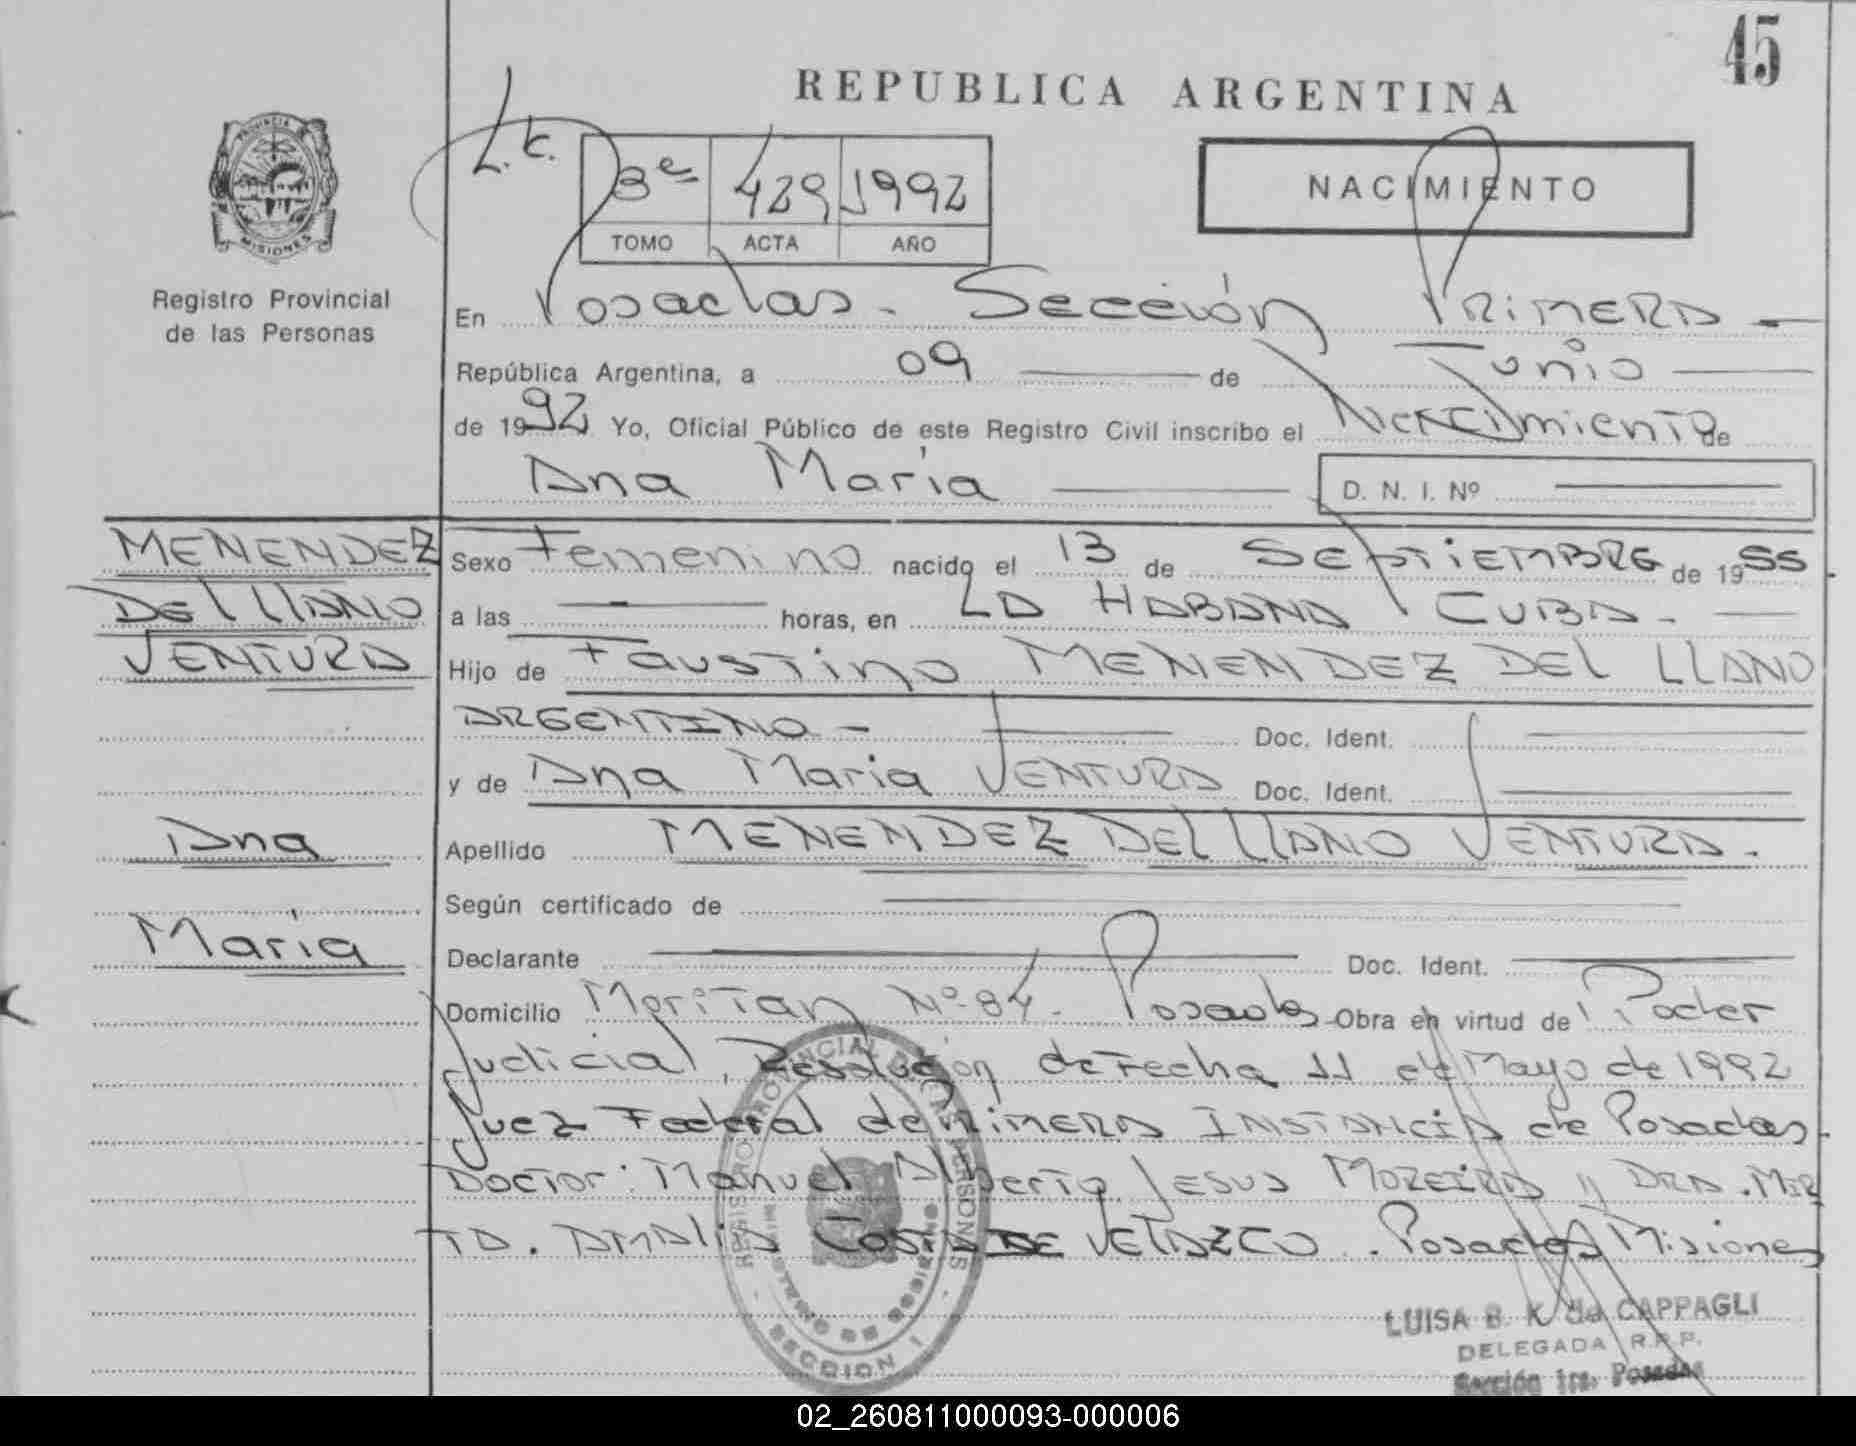 45
REPUBLICA ARGENTINA
PROVINCIA DE
MISIONES
L.E.
3º 429 1992
TOMO ACTA AÑO
NACIMIENTO
Registro Provincial
de las Personas
En Posadas - Sección Primera -
República Argentina, a 09 de Junio
de 1992 Yo, Oficial Público de este Registro Civil inscribo el Nacimiento de
Ana María
D. N. I. Nº
MENENDEZ
DEL LLANO
VENTURA
Ana
María
Sexo Femenino nacido el 13 de SEPTIEMBRE de 1955
a las horas, en LA HABANA CUBA -
Hijo de Faustino MENENDEZ DEL LLANO
ARGENTINO - Doc. Ident.
y de Ana Maria VENTURA Doc. Ident.
Apellido MENENDEZ DEL LLANO VENTURA.
Según certificado de
Declarante Doc. Ident.
Domicilio Nº 84 - Posadas - Obra en virtud de Poder
Judicial, Resolución de Fecha 11 de Mayo de 1992
Juez Federal de Primera INSTANCIA de Posadas
Doctor: Manuel Alberto Jesus MOREIRA y DRA. MIR
TA. AMALIA COSTA DE VELAZCO. Posadas Misiones
REGISTRO PROVINCIAL DE LAS PERSONAS
MINISTERIO DE GOBIERNO
- SECCION 1 -
LUISA B. K. de CAPPAGLI
DELEGADA R.P.P.
Sección 1ra. Posadas
02_260811000093-000006